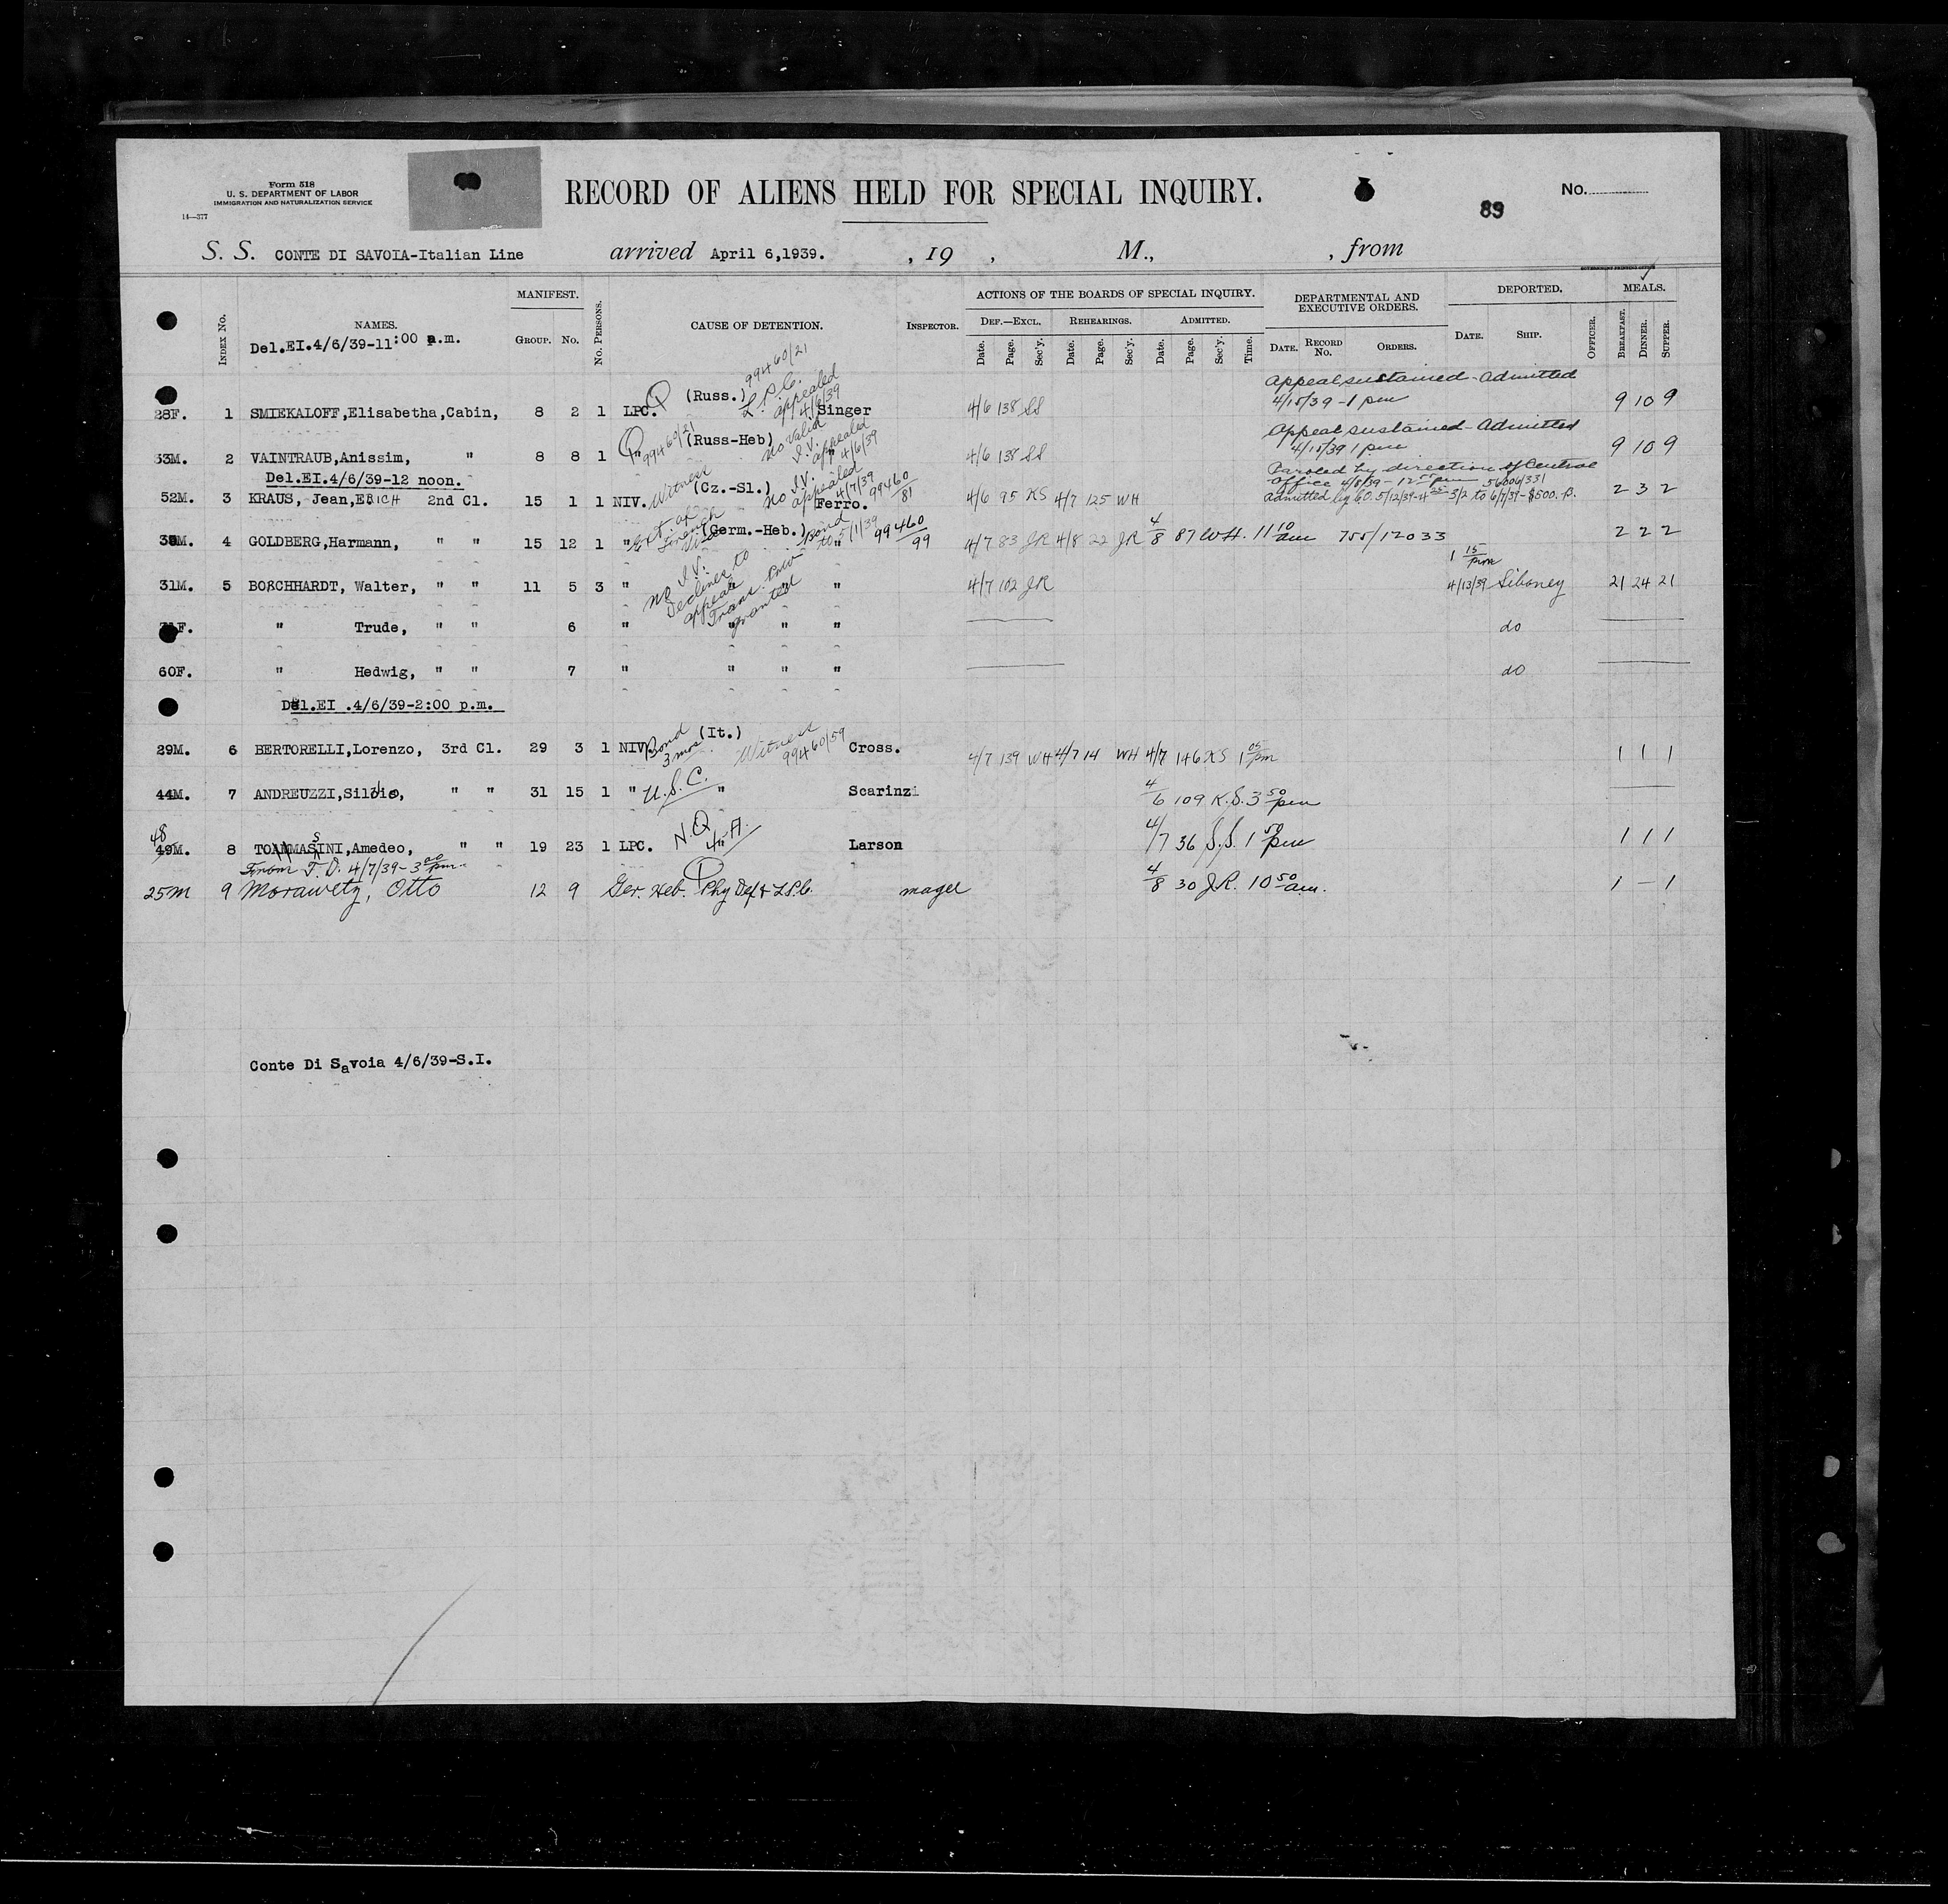 Form 518
U. S. DEPARTMENT OF LABOR
IMMIGRATION AND NATURALIZATION SERVICE
14—377
RECORD OF ALIENS HELD FOR SPECIAL INQUIRY.
No.
89
S. S. CONTE DI SAVOIA-Italian Line arrived April 6,1939. , 19 , M., , from
INDEX NO. NAMES. MANIFEST. GROUP. NO. NO. PERSONS. CAUSE OF DETENTION. INSPECTOR. ACTIONS OF THE BOARDS OF SPECIAL INQUIRY. DEPARTMENTAL AND EXECUTIVE ORDERS. DEPORTED. MEALS.
DEF.—EXCL. REHEARINGS. ADMITTED.
Date. Page. Sec'y. Date. Page. Sec'y. Date. Page. Sec'y. Time. DATE. RECORD NO. ORDERS. DATE. SHIP. OFFICER. BREAKFAST. DINNER. SUPPER.
Del.EI.4/6/39-11:00 a.m.
99460/21
(Russ.) L.P.C. appealed 4/6/39
Appeal sustained - Admitted
28F. 1 SMIEKALOFF,Elisabetha,Cabin, 8 2 1 LPC. Singer 4/6 138 SS 4/15/39 - 1 pm 9 10 9
99460/21 (Russ-Heb) no valid I.V. appealed 4/6/39
Appeal sustained - Admitted
33M. 2 VAINTRAUB,Anissim, " 8 8 1 " " 4/6 138 SS 4/15/39 1 pm 9 10 9
Del.EI.4/6/39-12 noon.
Paroled by direction of Central
Office 4/8/39 - 12 pm 56006/331
Witness (Cz.-Sl.) no I.V. appealed 4/7/39 99460/81
52M. 3 KRAUS, Jean,ERICH 2nd Cl. 15 1 1 NIV. Ferro. 4/6 95 KS 4/7 125 WH Admitted by C.O. 5/12/39 to 6/7/39 - $500. B. 2 3 2
Ext of French Visa (Germ.-Heb.) Bond to /1/39 99460/99
M. 4 GOLDBERG,Harmann, " " 15 12 1 " " 4/7 83 JR 4/8 22 JR 4/8 87 WH. 11 10 am 755/12033 2 2 2
1 15 pm
no I.V. Declines to appeal Trans. Priv. granted
31M. 5 BOSCHHARDT, Walter, " " 11 5 3 " " " " 4/7 102 JR 4/13/39 Siboney 21 24 21
31F. " Trude, " " 6 " " " " do
60F. " Hedwig, " " 7 " " " " do
Del.EI .4/6/39-2:00 p.m.
Bond 3 mos. (It.) Witness 99460/59
29M. 6 BERTORELLI,Lorenzo, 3rd Cl. 29 3 1 NIV Cross. 4/7 139 WH 4/7 14 WH 4/7 146 KS 1 05 pm 1 1 1
44M. 7 ANDREUZZI,Silvio, " " 31 15 1 " U.S.C. " Scarinzi 4/6 109 K.S. 3 50 pm
48
49M. 8 TOMMASSINI,Amedeo, " " 19 23 1 LPC. N.Q. " Larson 4/7 36 S.S. 1 50 pm 1 1 1
From T.D. 4/7/39 - 3 00 pm
25M 9 Morawetz, Otto 12 9 Ger. Heb. Phy Def & LPC. magel 4/8 30 JR. 10 50 am. 1 — 1
Conte Di Savoia 4/6/39-S.I.